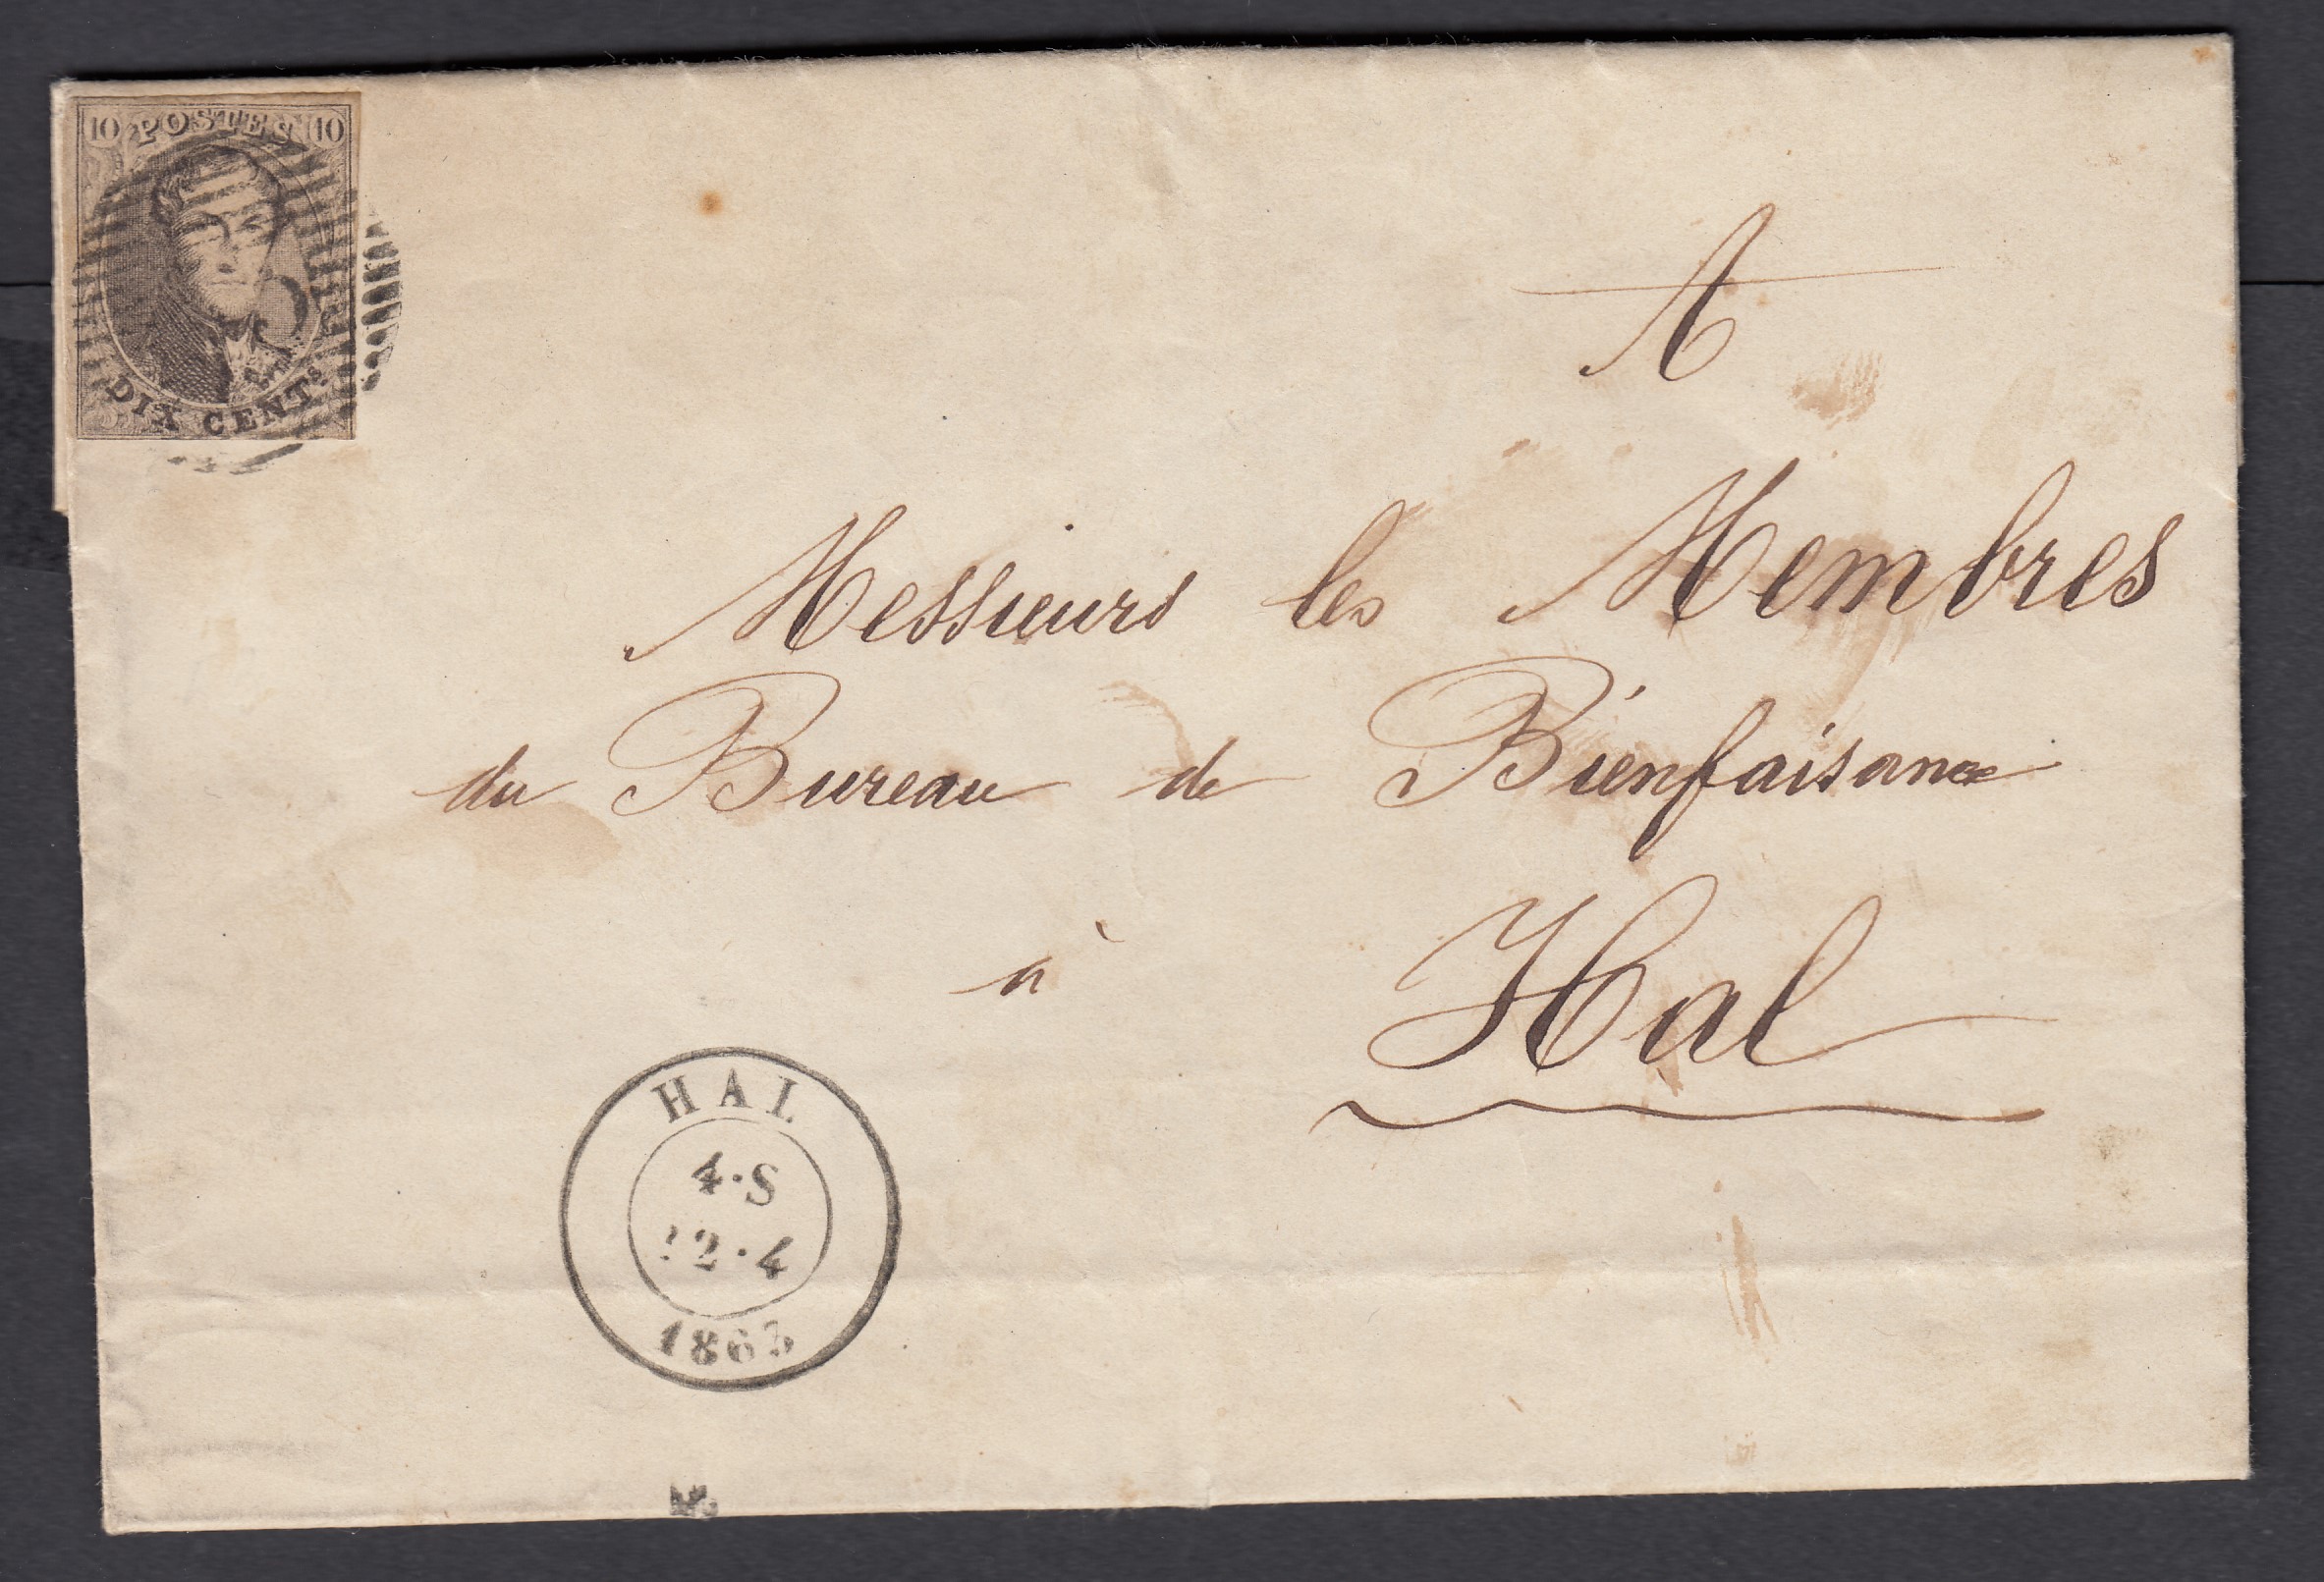 10 POSTES 10
DIX CENTS
A
Messieurs les Membres
du Bureau de Bienfaisance
à Hal
HAL
4·S
12·4
1863